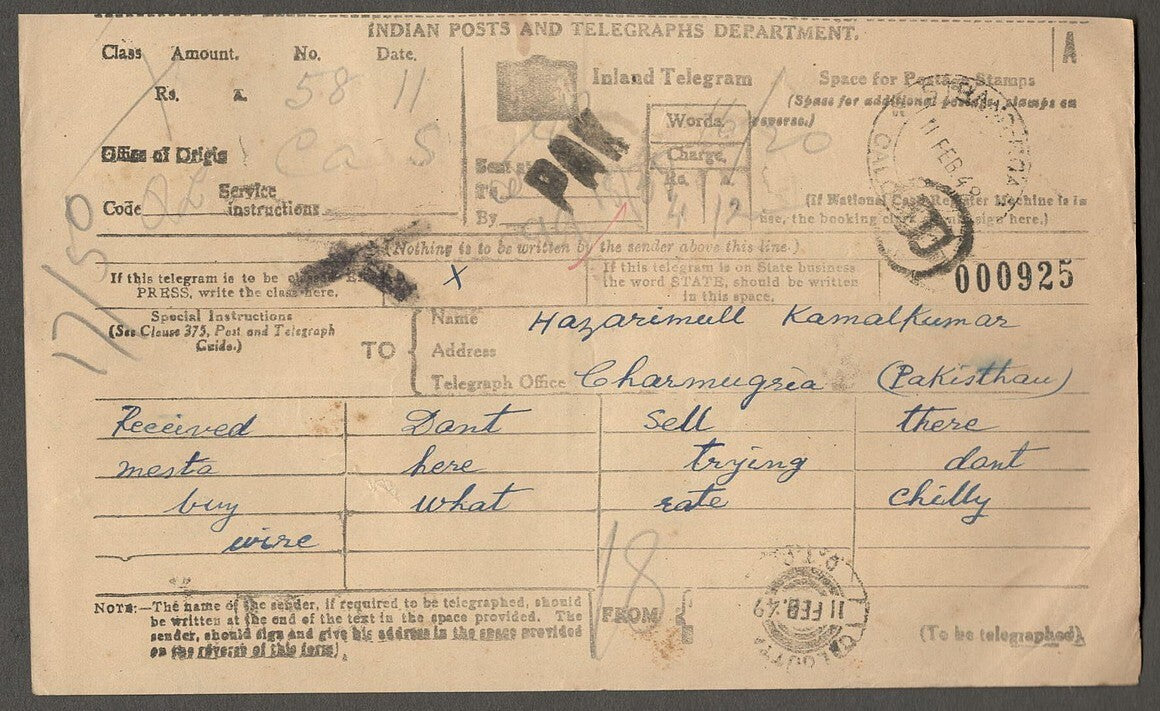 INDIAN POSTS AND TELEGRAPHS DEPARTMENT.
A
Class Amount. No. Date.
Rs. a. 58 11
Inland Telegram
Space for Postage Stamps
(Space for additional postage stamps on reverse.)
Words
20
Charge.
Rs. a.
4 12
Office of Origin
Ca S
Sent at
PAK
Service
Code instructions
By
(If National Cash Register Machine is in
use, the booking sign here.)
11 FEB 49
17/50
(Nothing is to be written by the sender above this line.)
If this telegram is to be
PRESS, write the class here.
X
If this telegram is on State business
the word STATE, should be written
in this space.
000925
Special Instructions
(See Clause 375, Post and Telegraph
Guide.)
TO
Name Hazarimull Kamalkumar
Address
Telegraph Office Charmugria (Pakisthan)
Received Dant Sell there
mesta here trying dont
buy what rate Chilly
wire
18
NOTE:—The name of the sender, if required to be telegraphed, should
be written at the end of the text in the space provided. The
sender, should sign and give his address in the space provided
on the reverse of this form).
FROM
11 FEB.49
CALCUTTA
(To be telegraphed)